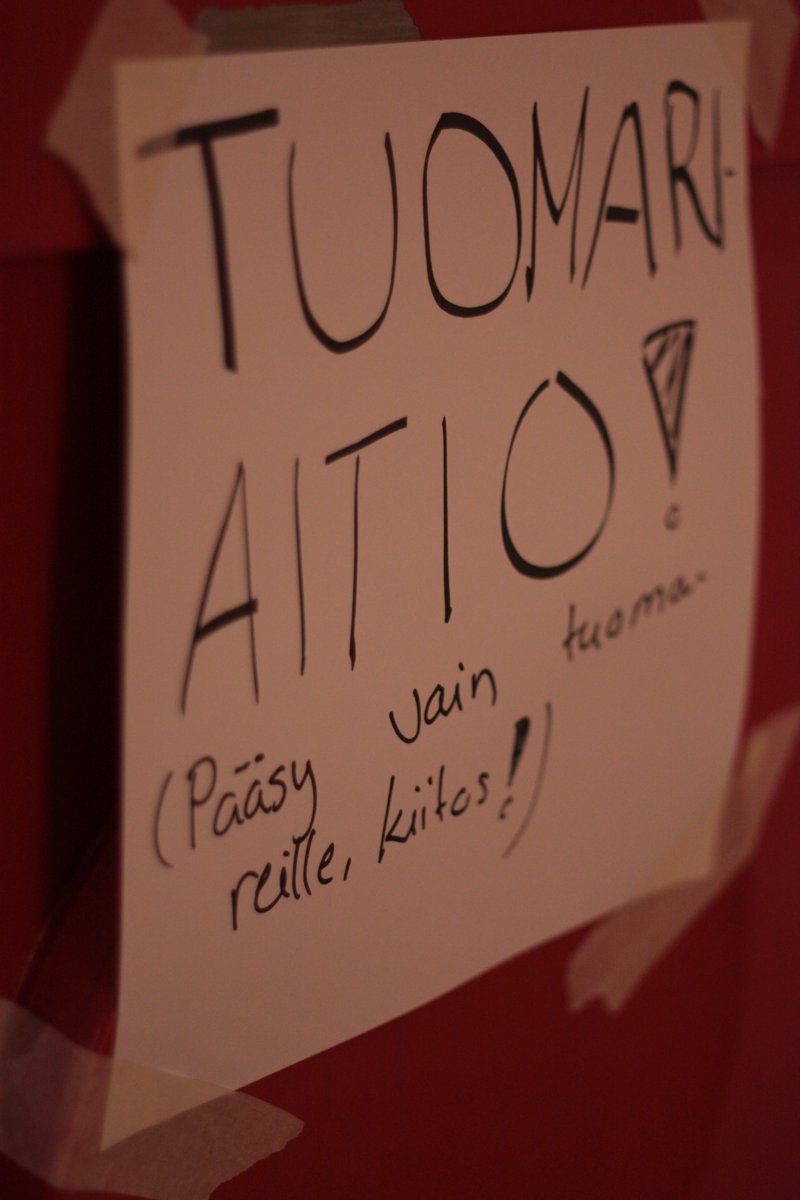 TUOMARI-
AITIO!
(Pääsy vain tuoma-
reille, kiitos!)